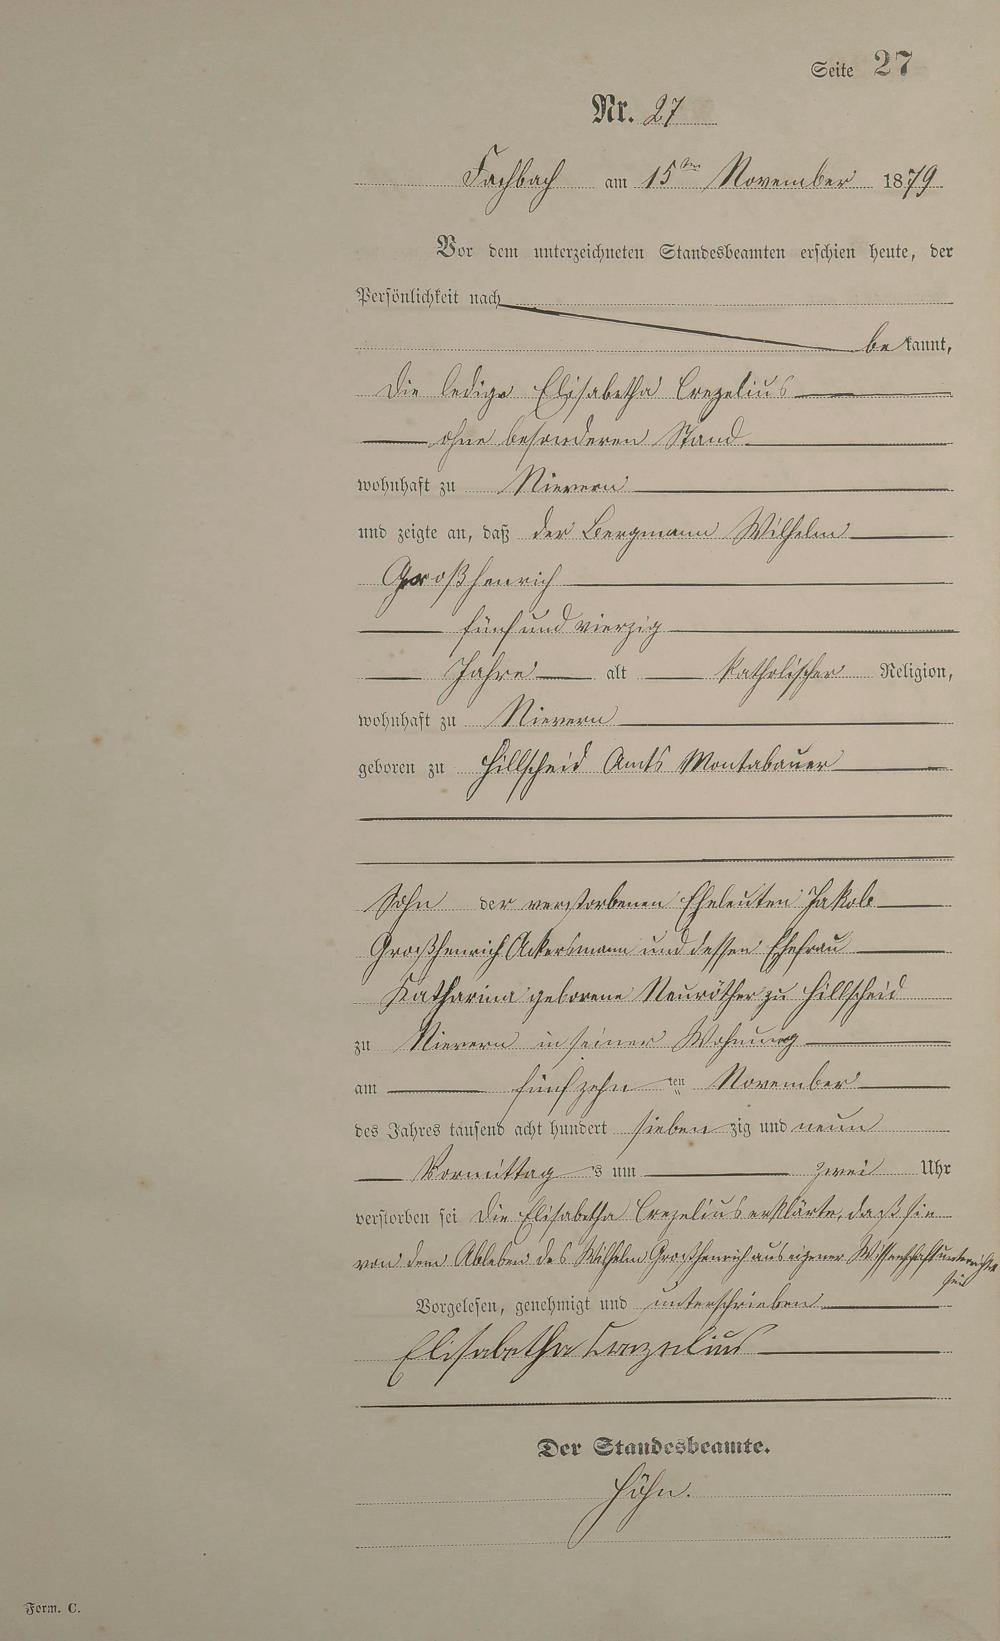 Seite 27
Nr. 27
Fachbach am 15ten November 1879
Vor dem unterzeichneten Standesbeamten erschien heute, der
Persönlichkeit nach
bekannt,
die ledige Elisabetha Crezelius
ohne besonderen Stand
wohnhaft zu Nievern
und zeigte an, daß der Bergmann Wilhelm
Großhenrich
fünf und vierzig
Jahre alt katholischer Religion,
wohnhaft zu Nievern
geboren zu Hillscheid Amts Montabauer
Sohn der verstorbenen Eheleuten Jakob
Großhenrich Ackersmann und dessen Ehefrau
Katharina geborene Neuröther zu Hillscheid
zu Nievern in seiner Wohnung
am fünfzehn ten November
des Jahres tausend acht hundert siebenzig und neun
Vormittags um zwei Uhr
verstorben sei die Elisabetha Crezelius erklärte, daß sie
von dem Ableben des Wilhelm Großhenrich aus eigener Wissenschaft unterrichtet
sei
Vorgelesen, genehmigt und unterschrieben
Elisabetha Crezelius
Der Standesbeamte.
Höhn.
Form. C.